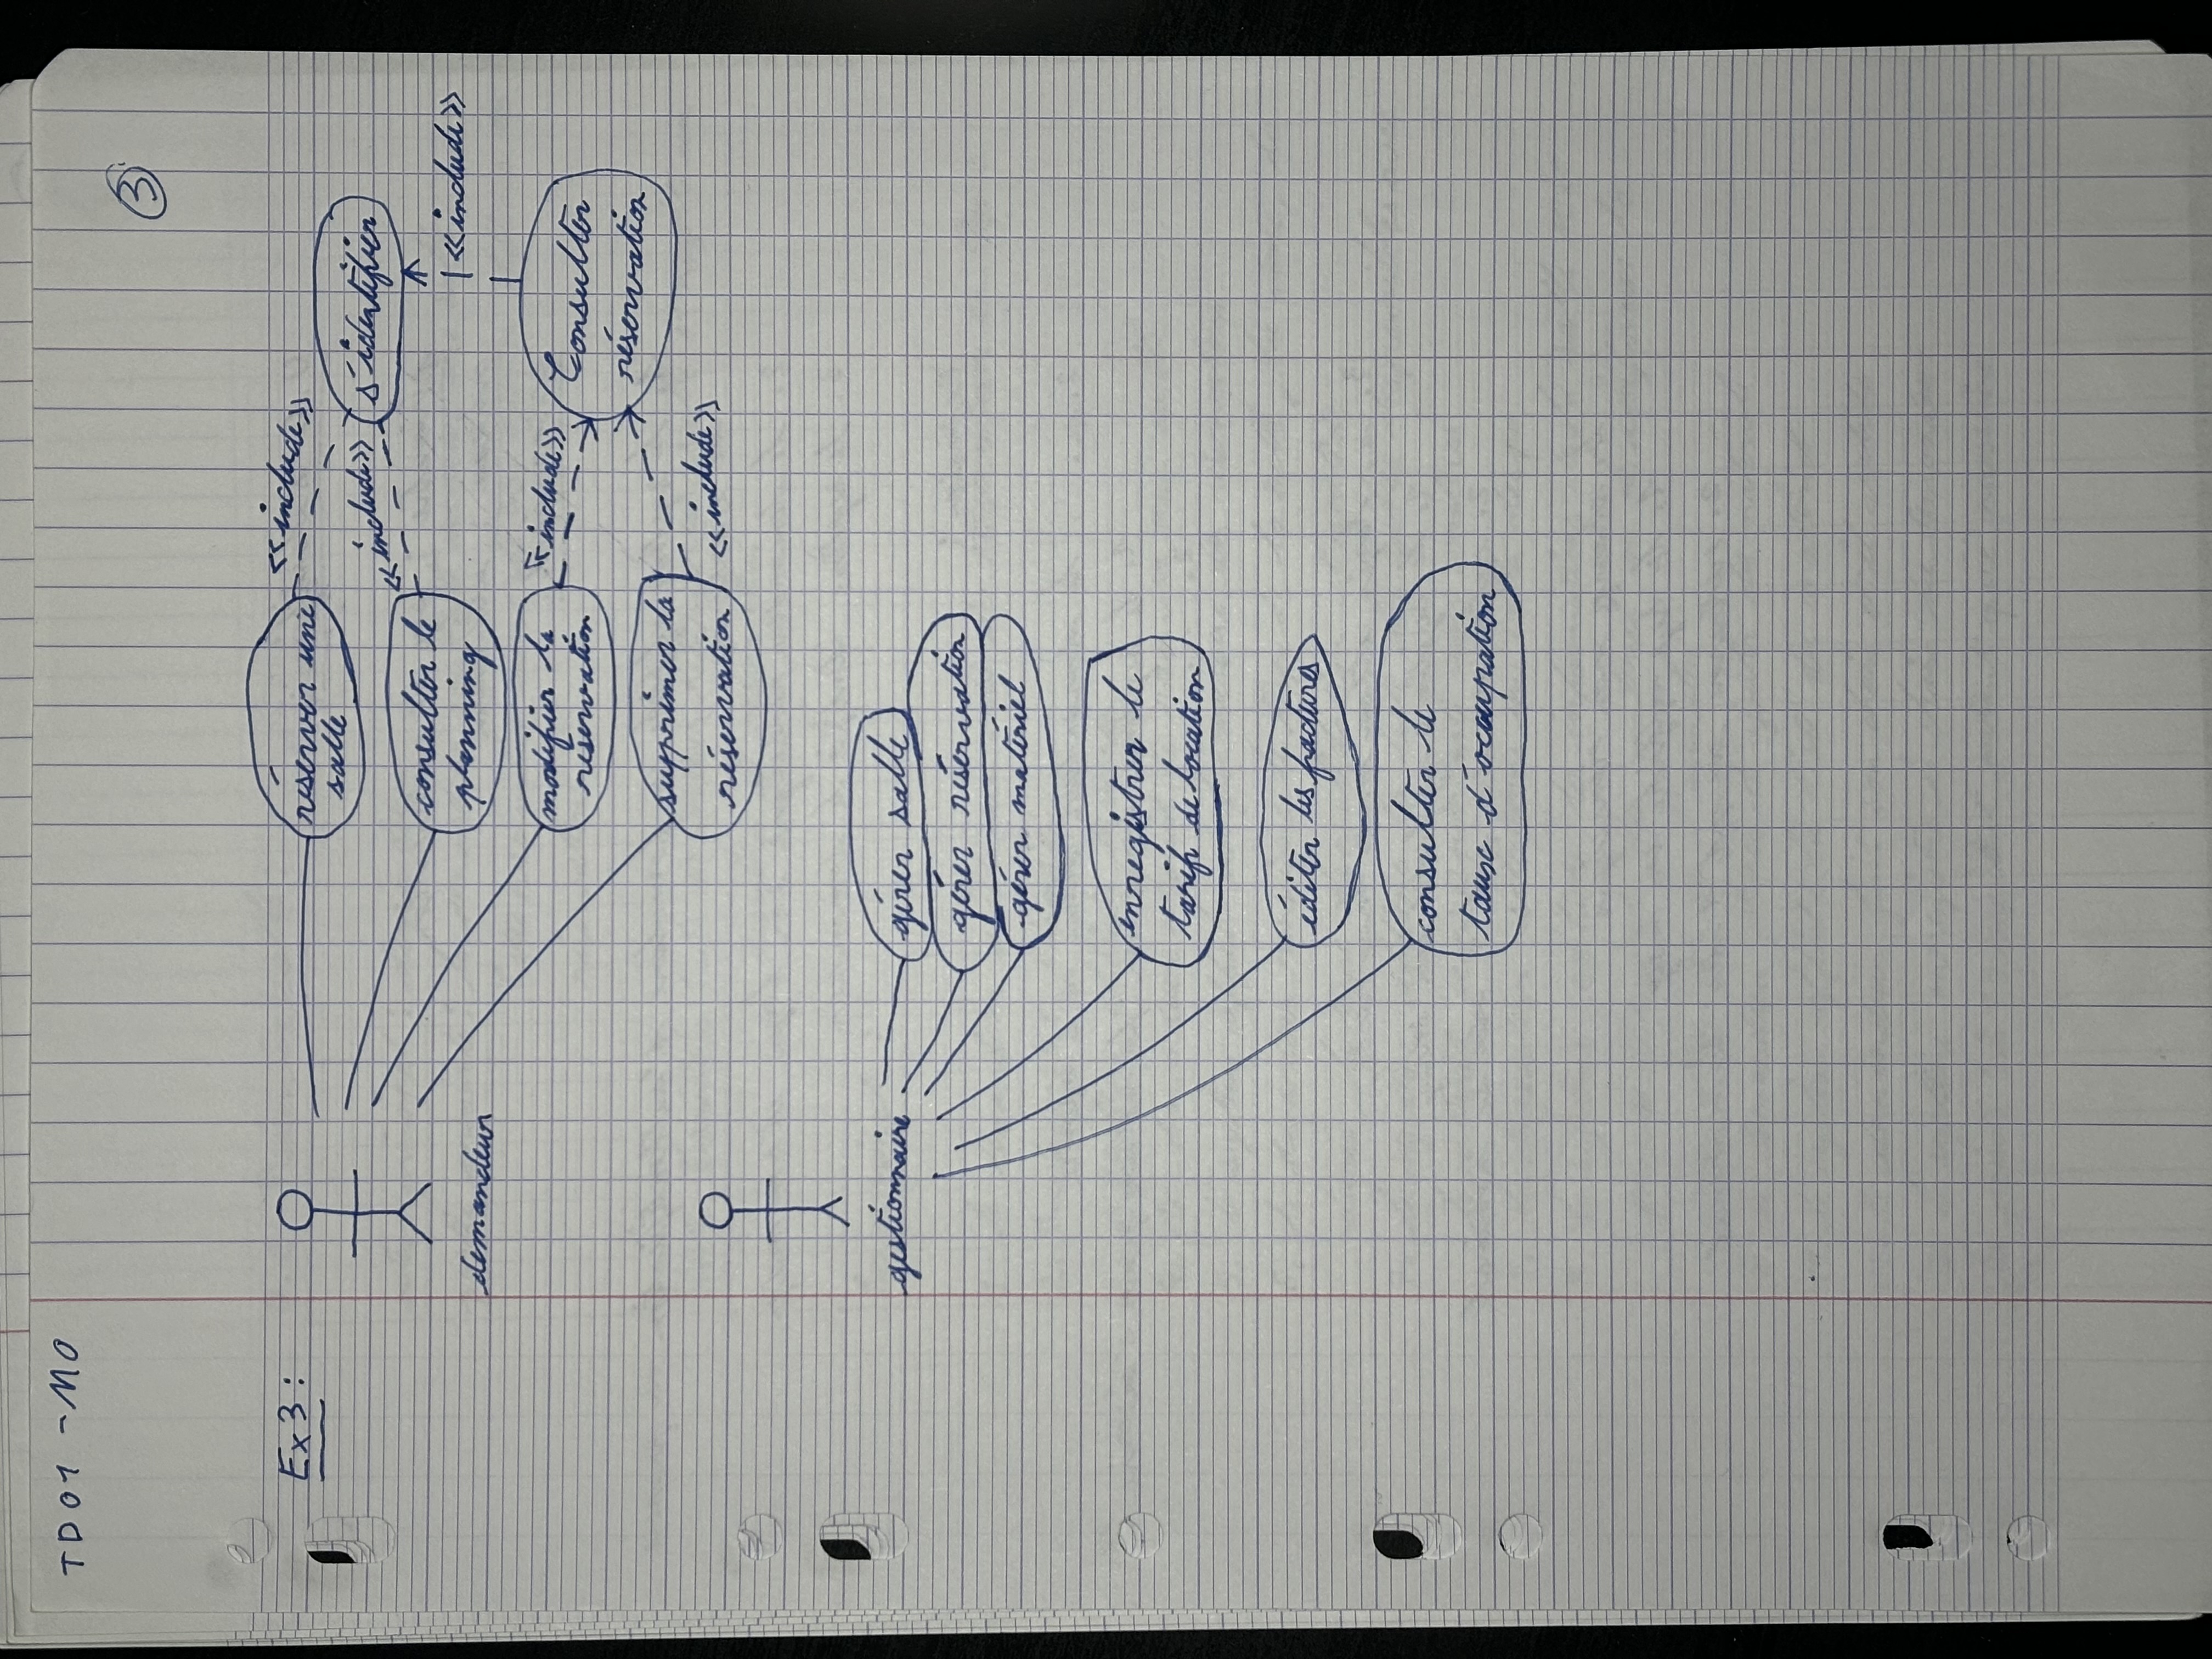 TD01 - MO
3
Ex3 :
réserver une
salle
<<include>>
s'identifier
<<include>>
consulter le
planning
<<include>>
demandeur
modifier la
réservation
<<include>>
Consulter
réservation
supprimer la
réservation
<<include>>
gestionnaire
gérer salle
gérer réservation
gérer matériel
enregistrer le
tarif de location
éditer les factures
consulter le
taux d'occupation